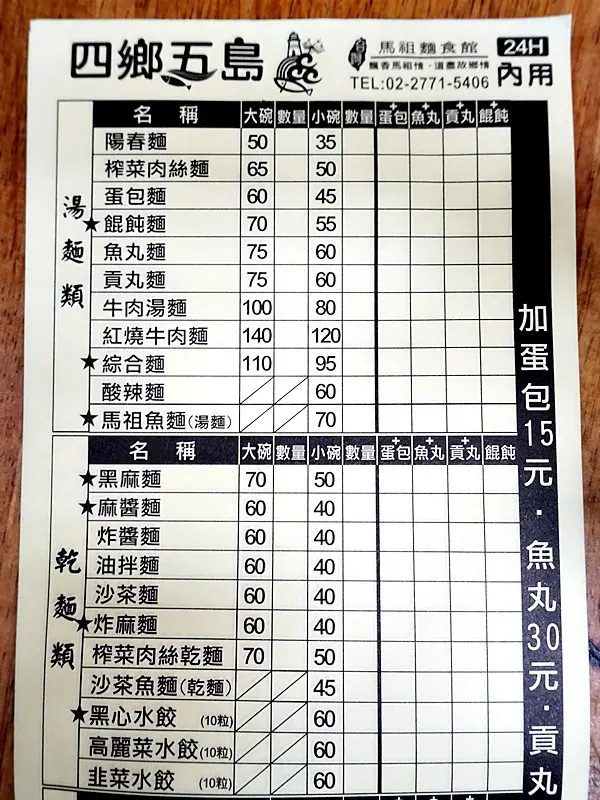 四鄉五島
台灣
馬祖麵食館
飄香馬祖情．道盡故鄉情
TEL:02-2771-5406
24H
內用
湯麵類
名 稱 大碗 數量 小碗 數量 +蛋包 +魚丸 +貢丸 +餛飩
陽春麵 50 35
榨菜肉絲麵 65 50
蛋包麵 60 45
★餛飩麵 70 55
魚丸麵 75 60
貢丸麵 75 60
牛肉湯麵 100 80
紅燒牛肉麵 140 120
★綜合麵 110 95
酸辣麵 60
★馬祖魚麵(湯麵) 70
乾麵類
名 稱 大碗 數量 小碗 數量 +蛋包 +魚丸 +貢丸 +餛飩
★黑麻麵 70 50
★麻醬麵 60 40
炸醬麵 60 40
油拌麵 60 40
沙茶麵 60 40
★炸麻麵 60 40
榨菜肉絲乾麵 70 50
沙茶魚麵(乾麵) 45
★黑心水餃 (10粒) 60
高麗菜水餃(10粒) 60
韭菜水餃 (10粒) 60
加蛋包15元．魚丸30元．貢丸